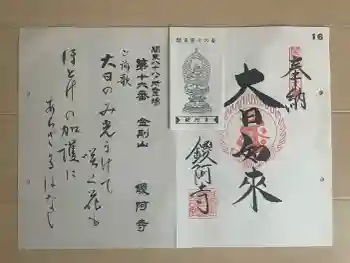 16
奉納
大日如來
鑁阿寺
関東第十六番
鑁阿寺
関東八十八ヶ所霊場
第十六番 金剛山 鑁阿寺
ご詠歌
大日のみ光うけて
咲く花も
ほとけの加護に
あらざるはなし